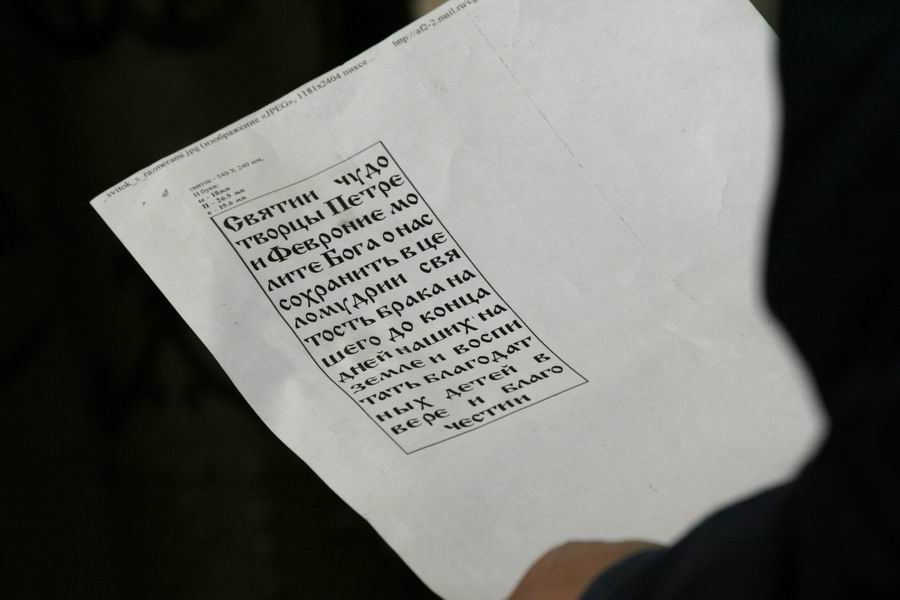 svitok_s_razmerami.jpg (изображение «JPEG», 1181x2404 пиксе...
http://af2-2.mail.ru/cg
свиток - 540 X 240 мм,
П букв:
м - 18мм
П - 20.5 мм
е - 19.6 мм
Святии чудо
творцы Петре
и Февроние мо
лите Бога о нас
сохранить в це
ломудрии свя
тость брака на
шего до конца
дней наших на
земле и воспи
тать благодат
ных детей в
вере и благо
честии